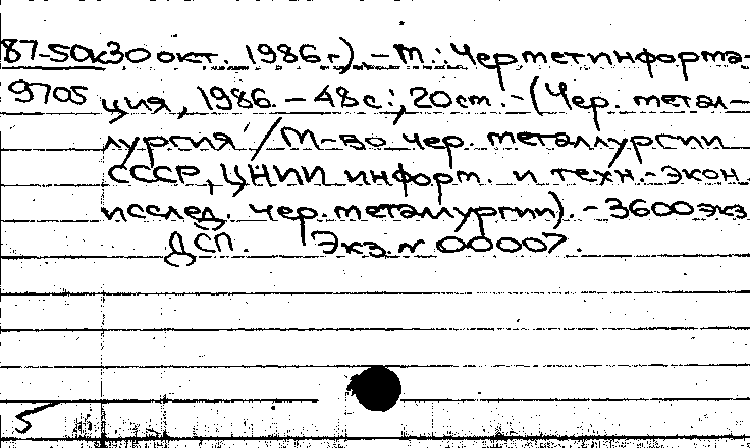 87-50к 30 окт. 1986 г.). - М.: Черметинформа-
9705 ция, 1986. - 48 с.; 20 см. - (Чер. метал-
лургия / М-во чер. металлургии
СССР, ЦНИИ информ. и техн.-экон.
исслед. чер. металлургии). - 3600 экз.
ДСП. Экз. N 00007.
5